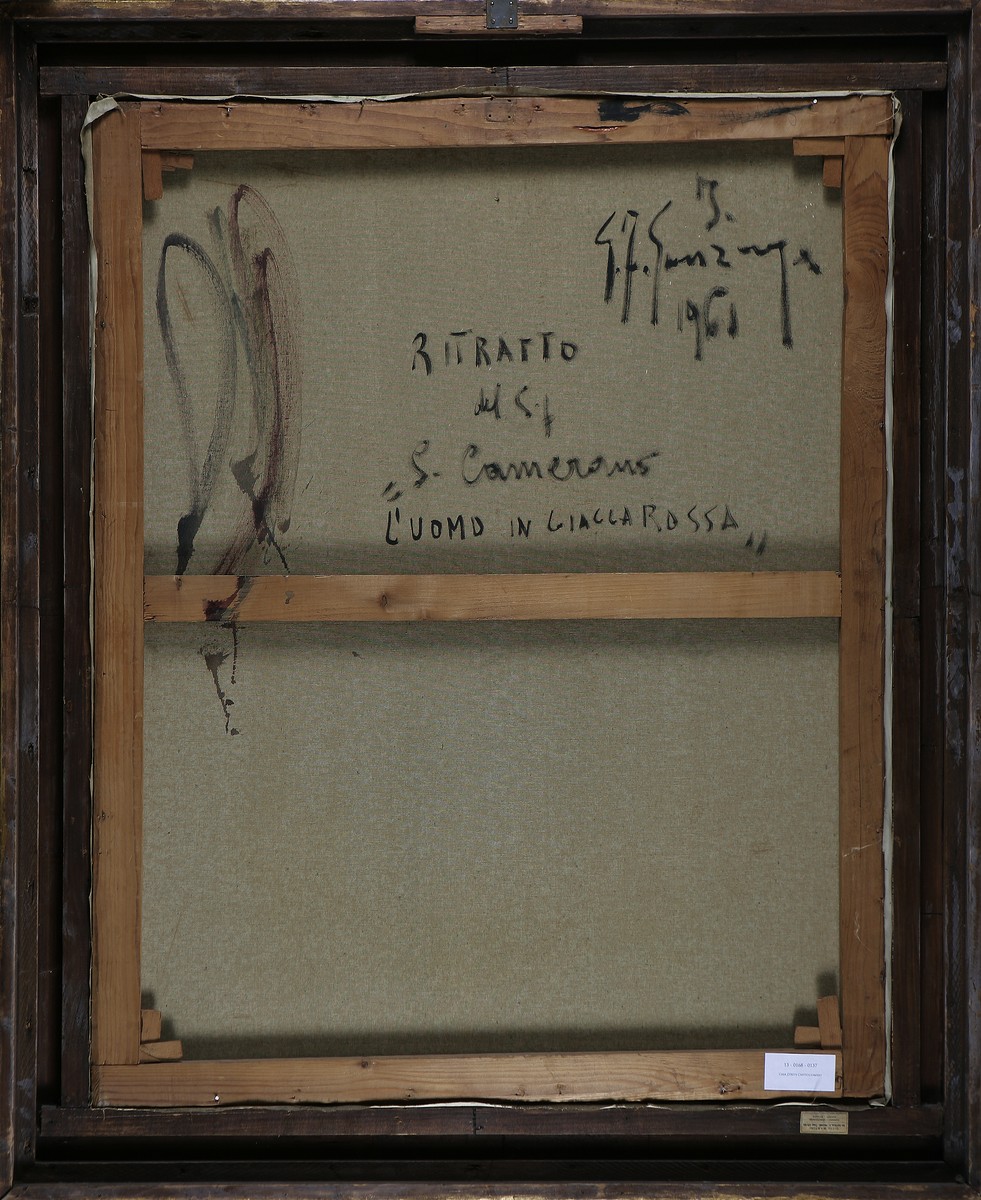 G.F. Gonzaga
1961
RITRATTO
del S.
S. Camerano
"L'UOMO IN GIACCA ROSSA"
13 - 0168 - 0137